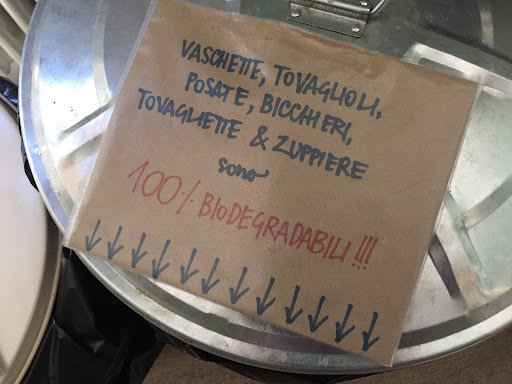 VASCHETTE, TOVAGLIOLI,
POSATE, BICCHIERI,
TOVAGLIETTE & ZUPPIERE
sono
100% BIODEGRADABILI!!!